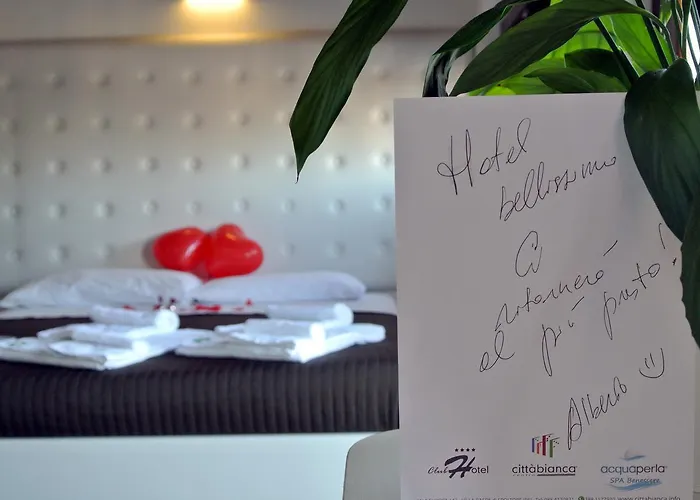 Hotel
bellissimo
Ci
ritornerò
al più presto!
Alberto
Club Hotel
cittàbianca
acquaperla
SPA Benessere